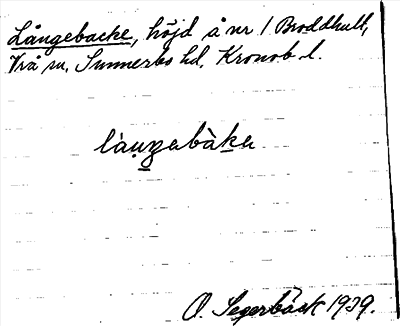 Långebacke, höjd å nr 1 Broddhult,
Vrå sn, Sunnerbo hd, Kronob. l.
làu̥ŋabàka
O. Segerbäck 1939.